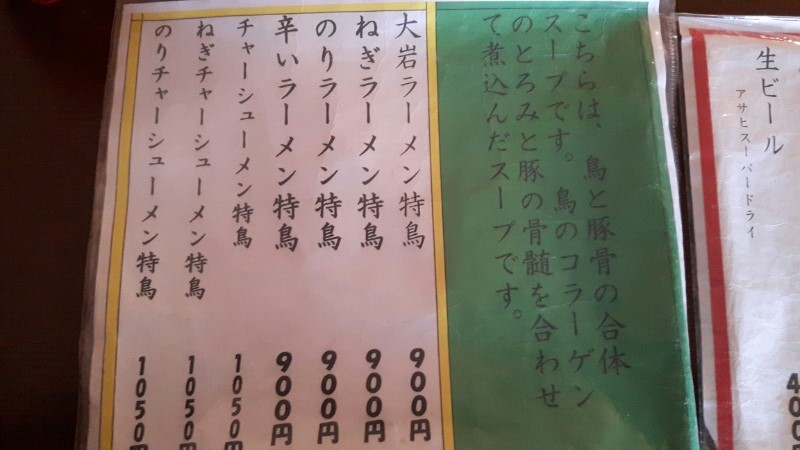 生ビール
アサヒスーパードライ
こちらは、鳥と豚骨の合体
スープです。鳥のコラーゲン
のとろみと豚の骨髄を合わせ
て煮込んだスープです。
大岩ラーメン特鳥 900円
ねぎラーメン特鳥 900円
のりラーメン特鳥 900円
辛いラーメン特鳥 900円
チャーシューメン特鳥 1050円
ねぎチャーシューメン特鳥 1050円
のりチャーシューメン特鳥 1050円